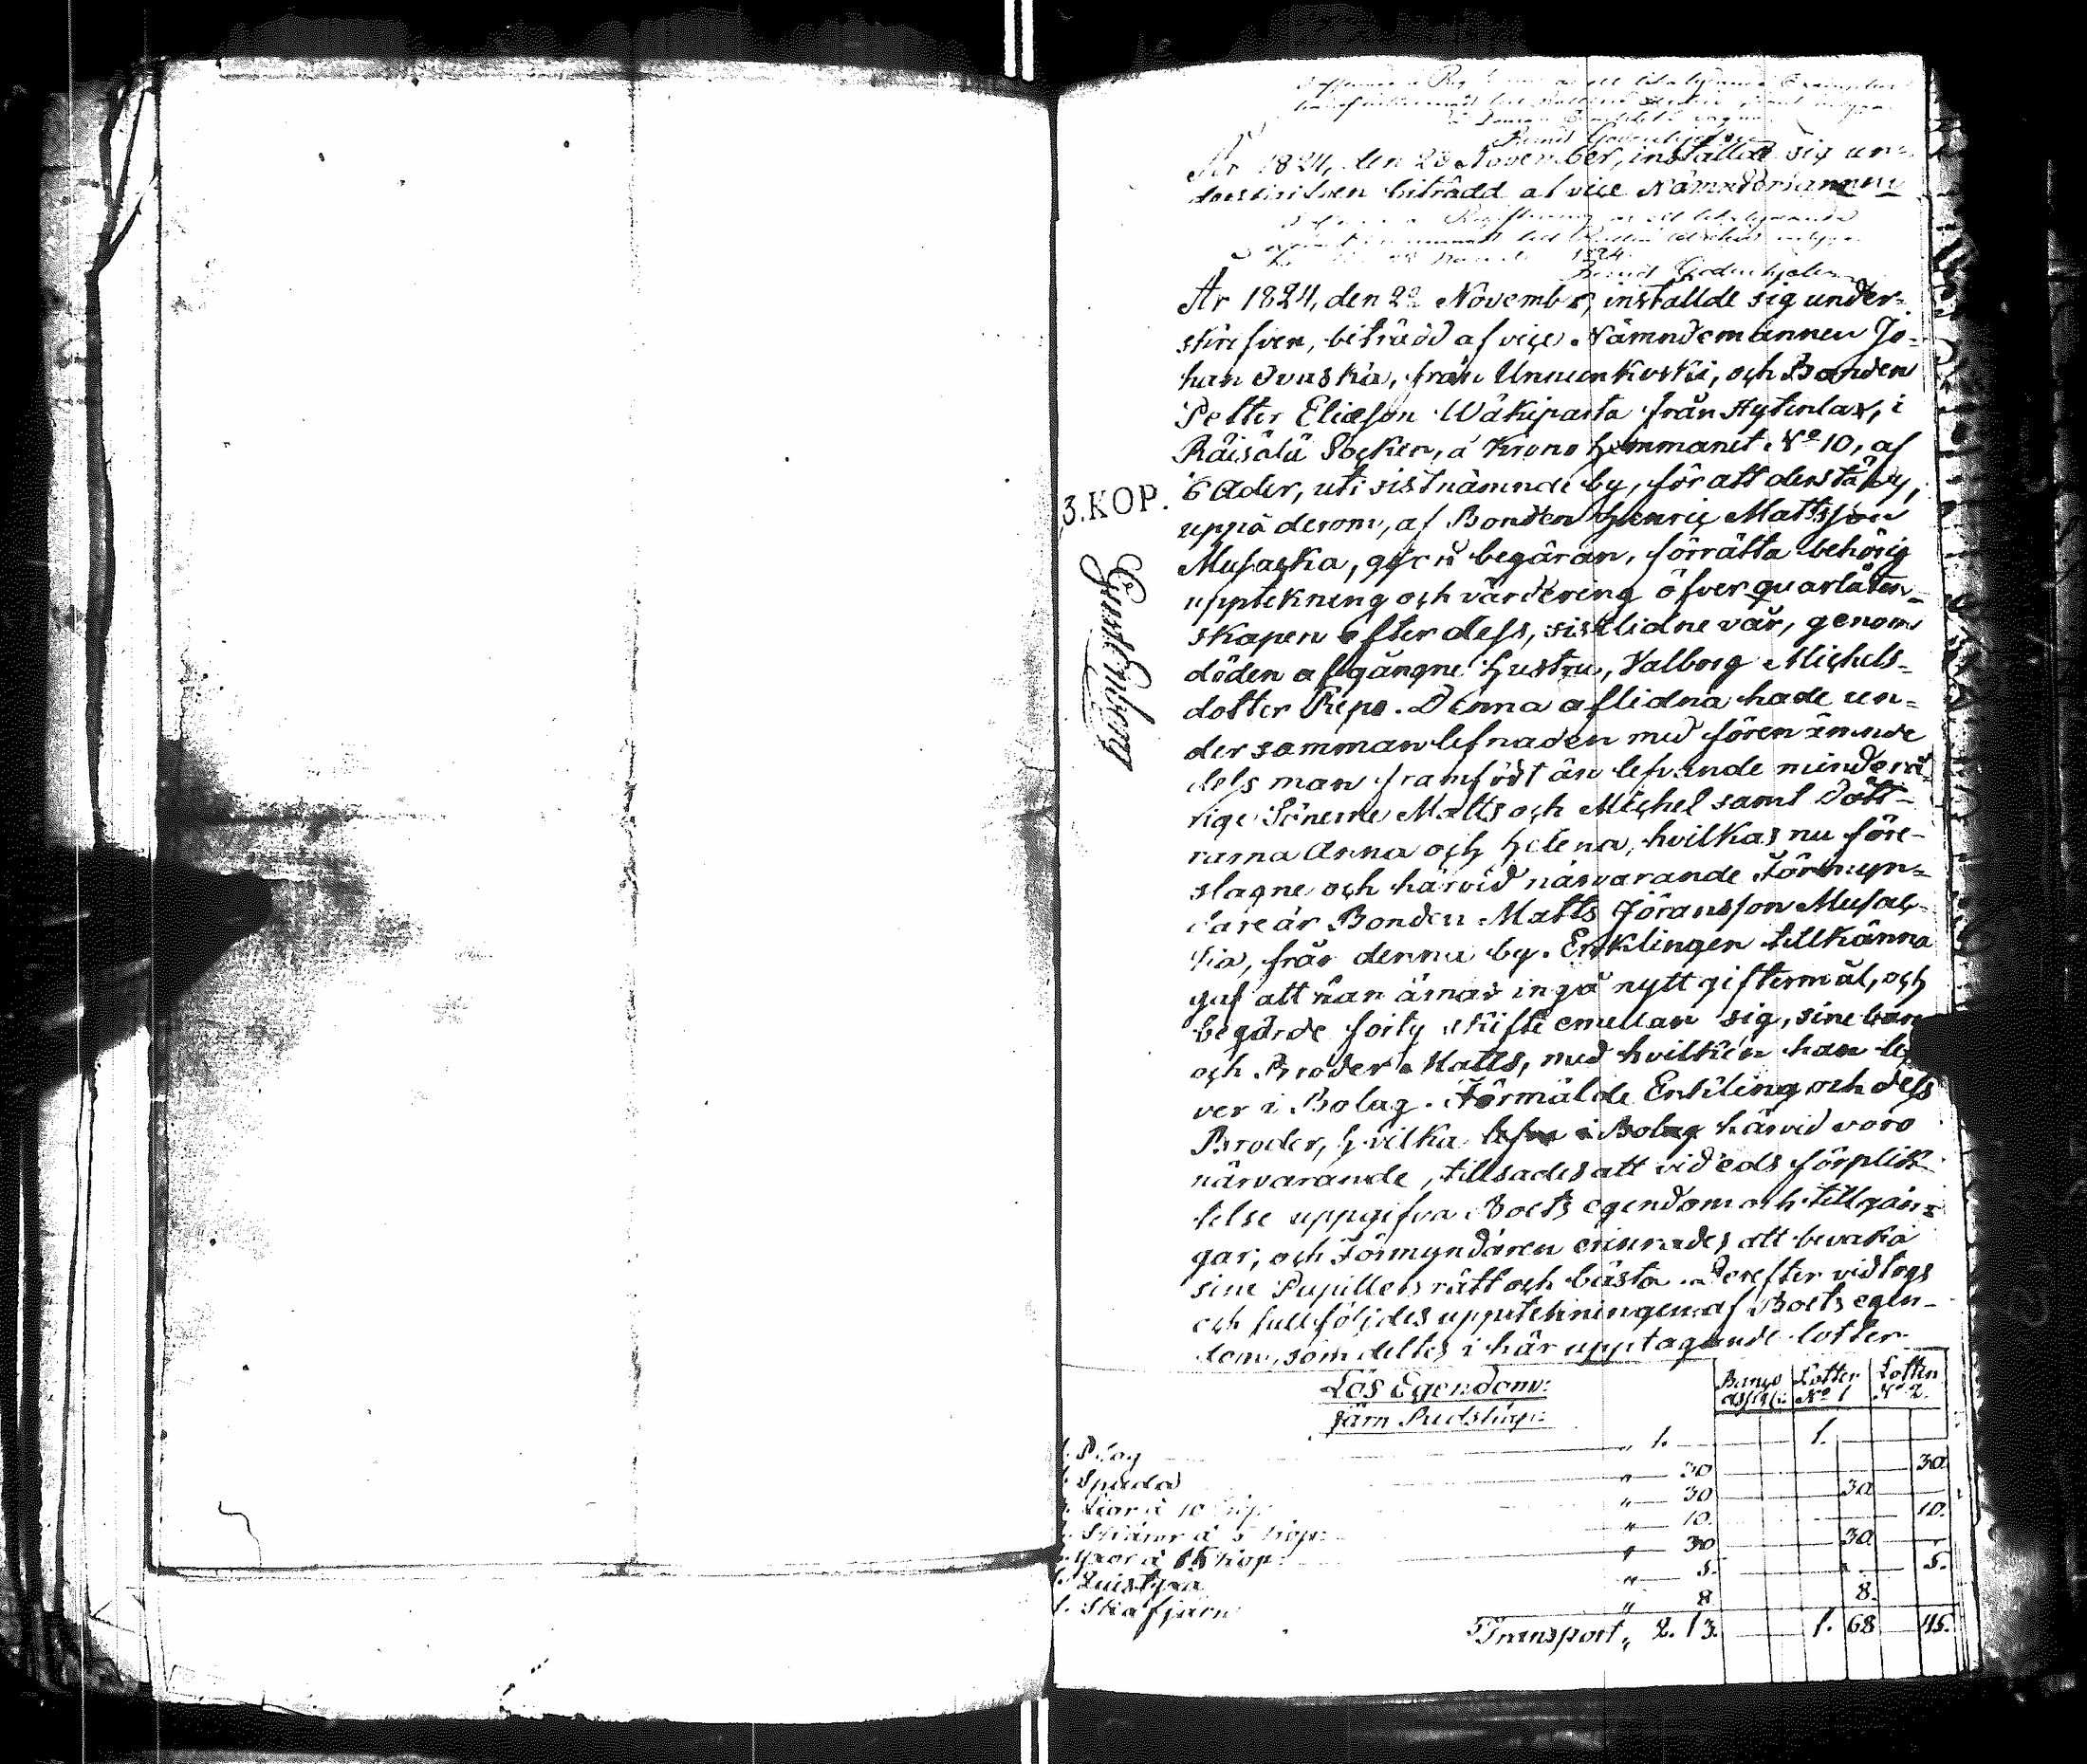 År 1824, den 23 November, inställde sig un-
derskrifven biträdd af vice Nämndemannen
1824.
År 1824, den 22 Novembr, inställde sig under-
skrifven, biträdd af vice Nämndemannen Jo-
han Ovaska, från Unnunkoski, och Bonden
Petter Eliæson Wäkiparta från Hytinlax, i
Räisälä Socken, å Krono Hemmanet No 10, af
6 Ader, uti sistnämnde by, för att derstädes,
uppå derom, af Bonden Henric Mattsson
3. KOP.
Musacka, gjord begäran, förrätta behörig
uppteckning och värdering öfver quarlåten-
skapen efter dess, sistlidne vår, genom
döden afgångne Hustru, Valborg Michels-
dotter Repo. Denna aflidna hade un-
der sammanlefnaden med förenämnde
dess man framfödt än lefvande minderå-
rige Sönerne Matts och Michel samt Dött-
rarna Anna och Helena, hvilkas nu före-
slagne och härvid närvarande Förmyn-
dare är Bonden Matts Jöransson Musac-
ka, från denna by. Enklingen tillkänna
gaf att han ärnar ingå nytt giftermål, och
begärde förty skifte emellan sig, sine barn
och Broder Matts, med hvilken han lef-
ver i Bolag. Förmälde Enkling och dess
Broder, hvilka härvid voro
närvarande, tillsades att vid eds förplik-
telse uppgifva Boets egendom och tillgån-
gar; och Förmyndaren erinrades att bevaka
sine Pupillers rätt och bästa. Derefter vidtogs
och fullföljdes uppteckningen af Boets egen-
dom, som deltes i här upptagande lotter
Lös Egendom: Banco Assign: Lotten No 1 Lotten No 2.
Järn Redskap:
1. Plog " 1. 1.
1. Spada " 30 30
Liar à 10 kop: " 30 30
Skäror à 5 kop: " 10. 10.
Yxor à 15 kop: " 30 30
1. Quistyxa " 5. 5.
1. Skafjärn " 8 8.
Transport " 2. 13. 1. 68 45.